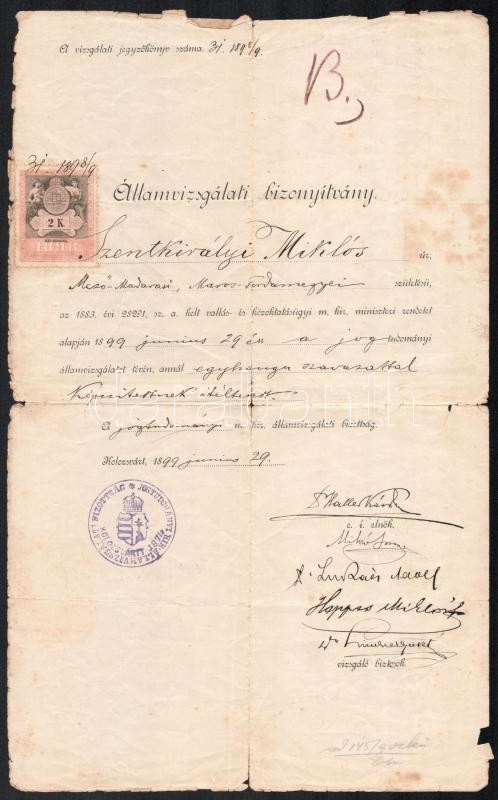 A vizsgálati jegyzőkönyv száma. 31. 1898/9.
B.,
31. 1898/9
2 K.
Államvizsgálati bizonyítvány.
Szentkirályi Miklós úr,
Mező-Madarasi, Maros-Tordamegyei születésü,
az 1883. évi 28291. sz. a. kelt vallás- és közoktatásügyi m. kir. miniszteri rendelet
alapján 1899 junius 29 én a jogtudományi
államvizsgálatot tévén, annál egyhangu szavazattal
képesítettnek itéltetett.
A jogtudományi m. kir. államvizsgálati bizottság.
Kolozsvárt, 1899 junius 29.
e. i. elnök.
Mikó Imre
Dr. Lukács Adolf
Miklós
vizsgáló biztosok.
darabanth